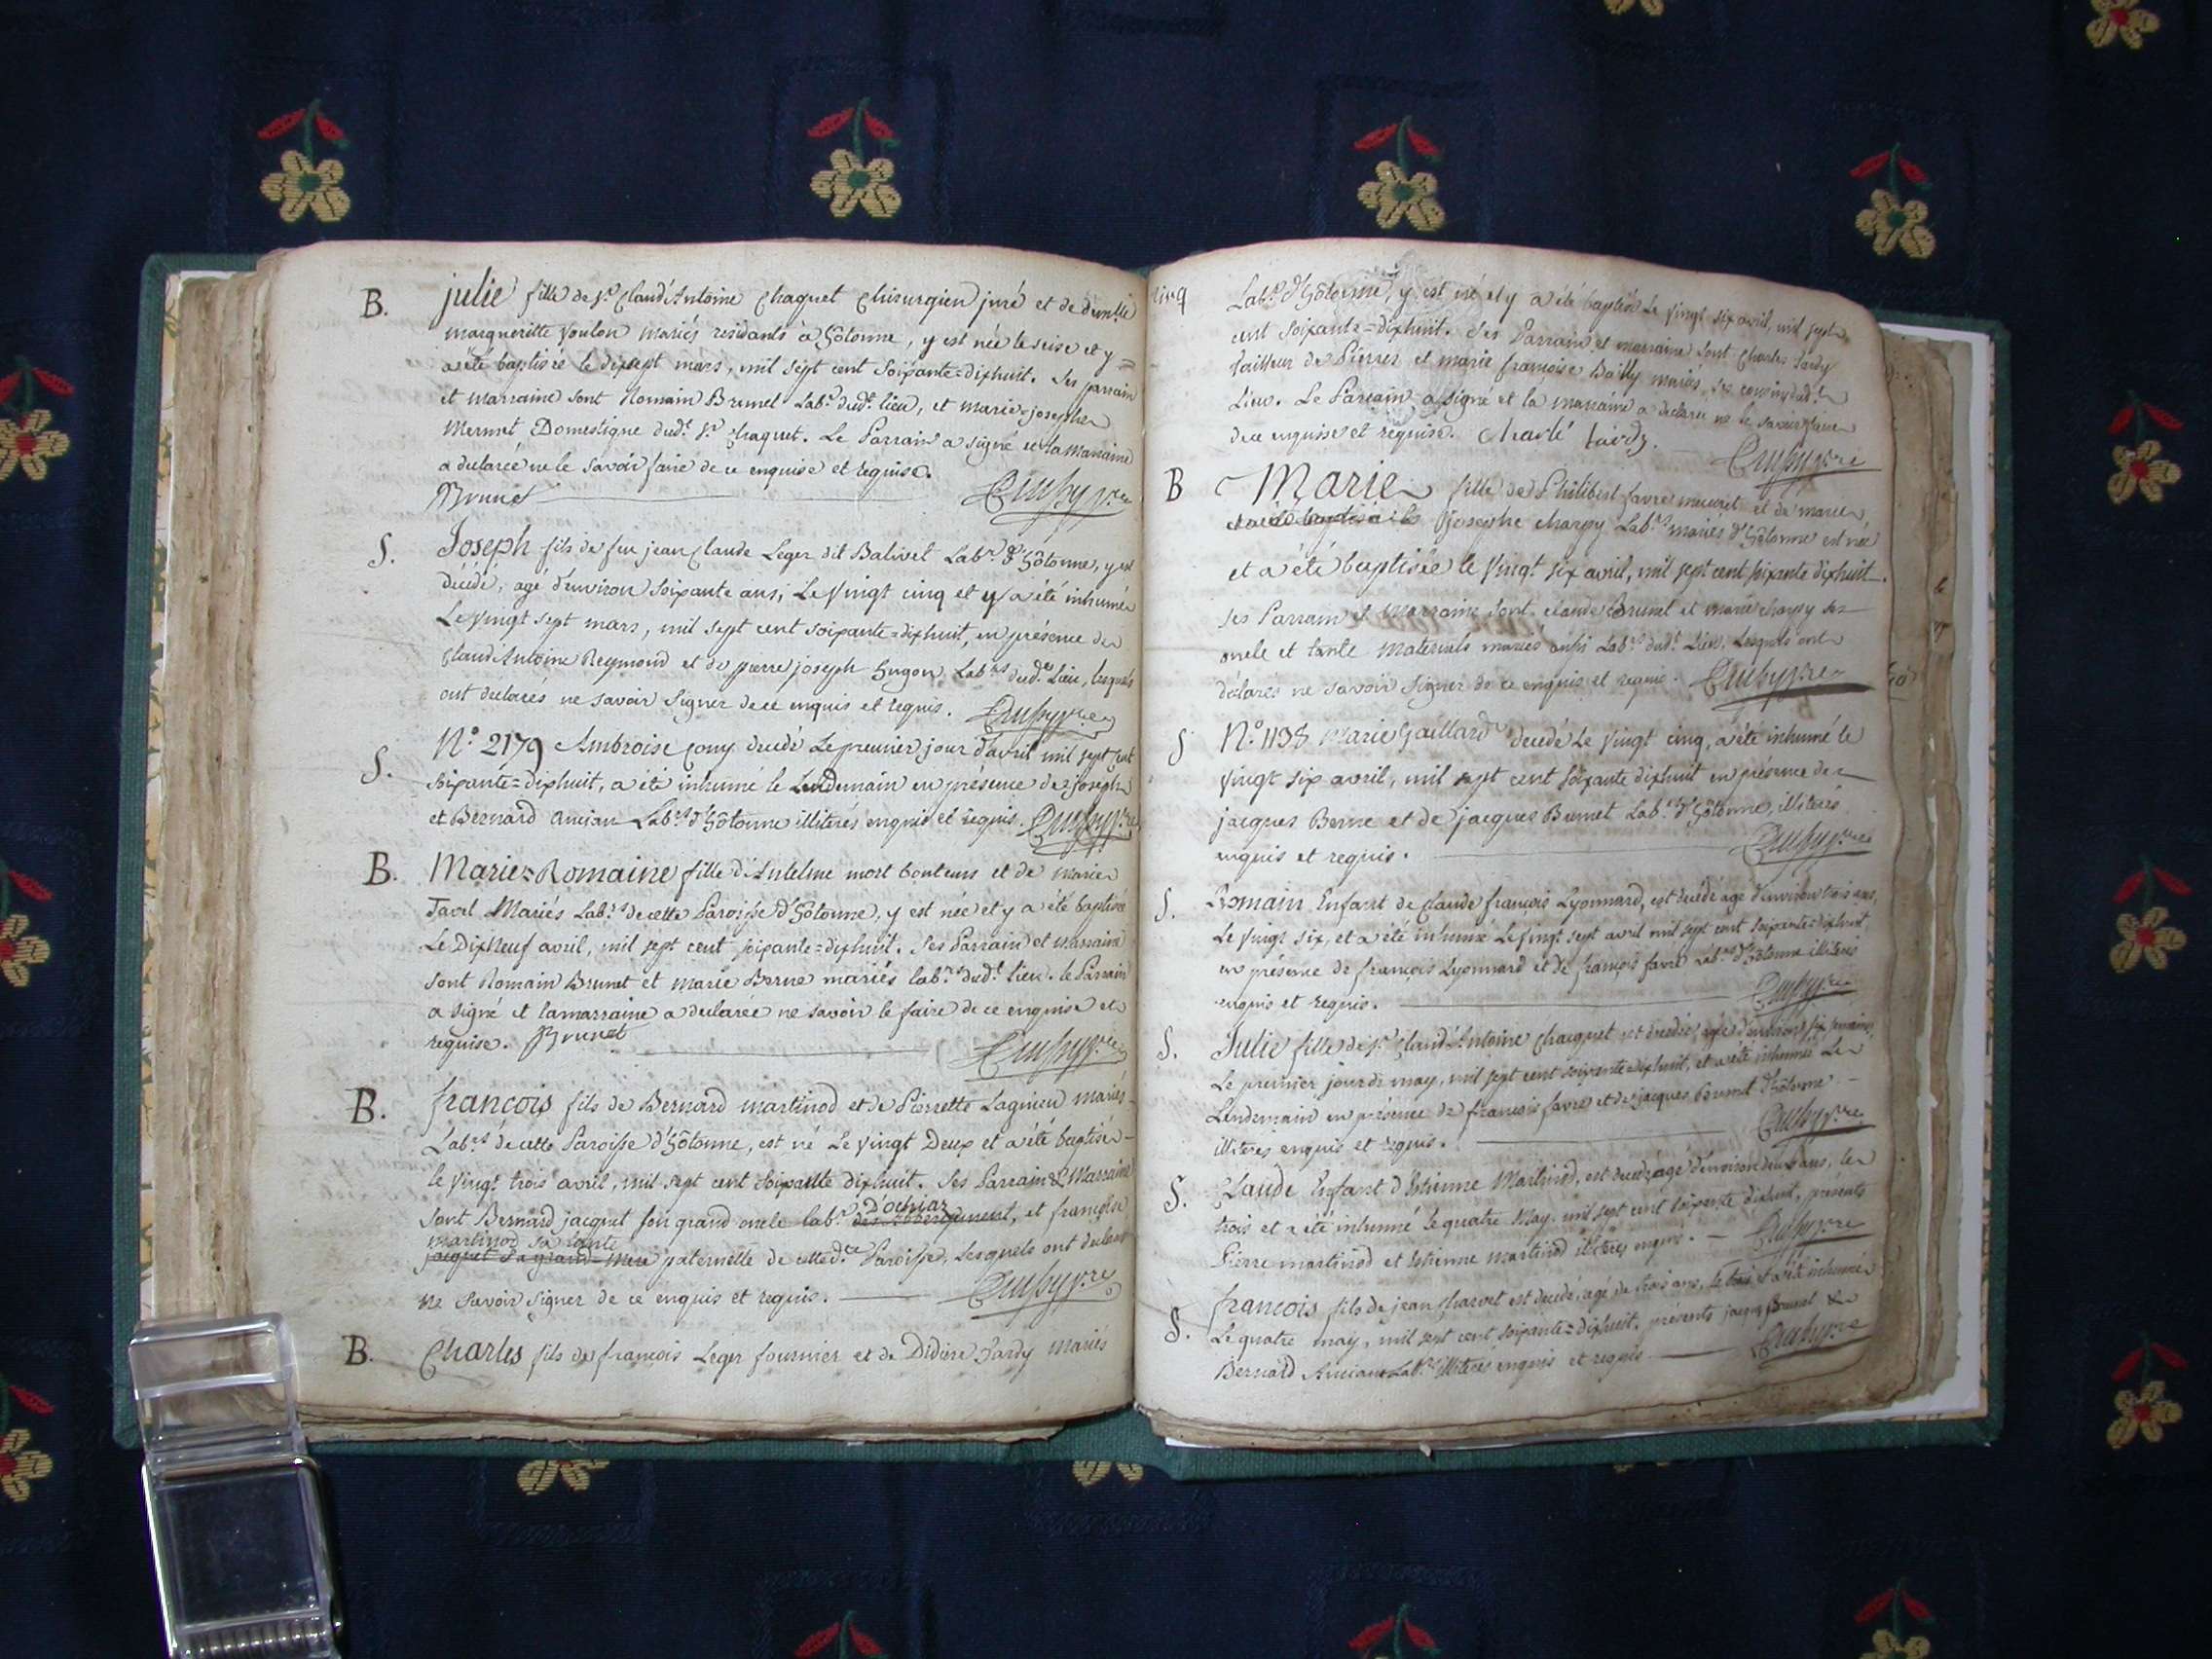 B. julie fille de Sr. Claud'Antoine Chaquet Chirurgien juré et de demlle
margueritte Voulon mariés residants à hôtonne, y est née le seise et y
a été baptisée le dixsept mars, mil sept cent soixante=dixhuit. Ses parrain
et marraine sont Romain Brunet Labr. dudt. lieu, et marie=josephe
Mermet Domestique dudt. Sr. Chaquet. Le Parrain a signé et la marraine
a declarée ne le savoir faire de ce enquise et requise.
Brunet
S. Joseph fils de feu jean Claude Leger dit Balivet Labr. d'hôtonne, y est
décédé, agé d'environ soixante ans, Le vingt cinq et y a été inhumé
Le vingt sept mars, mil sept cent soixante=dixhuit, en présence de
Claud'Antoine Reymond et de pierre joseph hugon Labrs dudt. Lieu, lesquels
ont declarés ne savoir signer de ce enquis et requis.
S. N.° 2179 Ambroise Cony decedé Le premier jour d'avril mil sept cent
soixante=dixhuit, a été inhumé le Lendemain en présence de joseph
et Bernard ancian Labrs d'hôtonne illiterés enquis et requis.
B. Marie=Romaine fille d'Antelme mort bontems et de marie
Tavel Mariés Labrs de cette Paroisse d'hôtonne, y est née et y a été baptisée
Le Dixneuf avril, mil sept cent soixante=dixhuit. Ses Parrain et marraine
sont Romain Brunet et marie Berne mariés labrs dudt. lieu. le Parrain
a signé et la marraine a declarée ne savoir le faire de ce enquise et
requise. Brunet
B. françois fils de Bernard martinod et de Pierrette Lagnieu mariés
Labrs de cette Paroisse d'hôtonne, est né Le vingt Deux et a été baptisé
le vingt trois avril, mil sept cent soixante dixhuit. Ses Parrain & Marraine
D'ochiaz
sont Bernard jacquet son grand oncle labr. et françoise
martinod sa tante
jacquet sa grand=mere paternelle de cetted. Paroisse, Lesquels ont declaré
ne savoir signer de ce enquis et requis.
B. Charles fils de françois Leger fournier et de Didiere Tardy mariés
cinq
Labrs d'hôtonne, y est né et y a été baptisé Le vingt six avril, mil sept
cent soixante=dixhuit. Ses Parrain et marraine sont Charles Tardy
tailleur de Pierres et marie françoise Bailly mariés, ses cousins dudt.
Lieu. Le Parrain a signé et la marraine a declaré ne le savoir faire
de ce enquise et requise. Charle tardy.
B Marie fille de Philibert favre meuret et de marie
et a été baptisée le josephe charpy Labrs mariés d'hôtonne est née
et a été baptisée le vingt six avril, mil sept cent soixante dixhuit.
ses Parrain & marraine sont claude Brunet et marie charpy ses
oncle et tante Maternels mariés aussi Labrs dudt. Lieu, Lesquels ont
déclarés ne savoir signer de ce enquis et requis.
S N.° 1138 Marie Gaillard decedé Le vingt cinq, a été inhumé le
vingt six avril, mil sept cent soixante dixhuit en présence de
jacques Berne et de jacques Brunet Labrs d'hôtonne, illiterés
enquis et requis.
S. Romain Enfant de Claude françois Lyonnard, est decedé agé d'environ trois ans,
Le vingt six, et a été inhumé Le vingt sept avril mil sept cent soixante=dixhuit,
en présence de françois Lyonnard et de françois favre Labrs d'hôtonne illiterés
enquis et requis.
S. Julie fille de Sr. Claud'Antoine Chaquet est decedée, agée d'environ six semaines,
Le premier jour de may, mil sept cent soixante=dixhuit, et a été inhumée Le
Lendemain en présence de françois favre et de jacques Brunet d'hôtonne
illiterés enquis et requis.
S. Claude Enfant d'Etienne Martinod, est decedé, agé d'environ deux ans, le
trois et a été inhumé le quatre May, mil sept cent soixante dixhuit, présents
Pierre martinod et Etienne martinod illiterés enquis.
S. françois fils de jean Charvet est decedé, agé de trois ans, le trois et a été inhumé
Le quatre may, mil sept cent soixante=dixhuit, présents jacques Brunet &
Bernard Ancian Labrs illiterés enquis et requis.